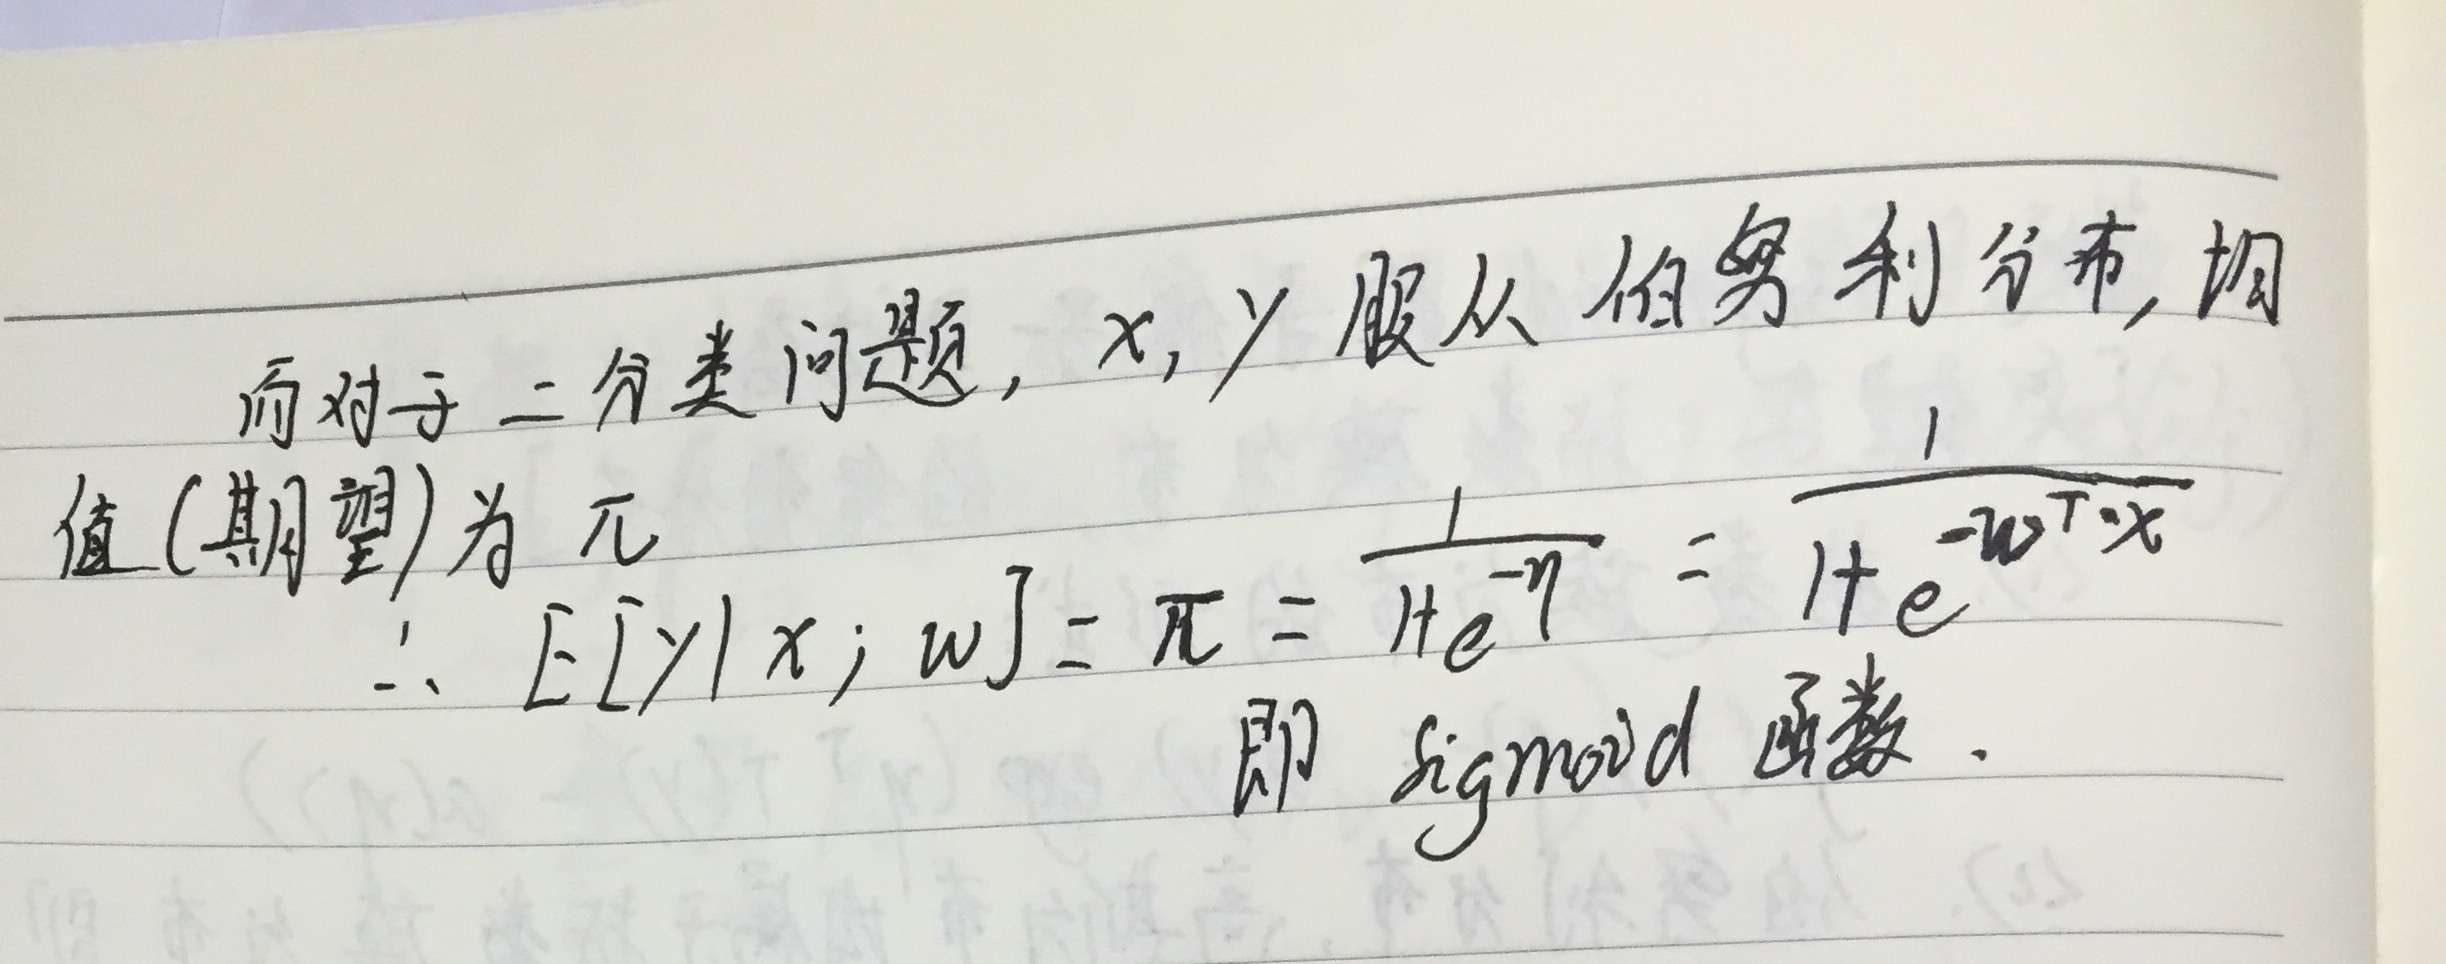 而对于二分类问题, x, y 服从伯努利分布, 均
值(期望)为 π
∴ E[y|x; w] = π = \frac{1}{1+e^{-η}} = \frac{1}{1+e^{-w^T·x}}
即 sigmoid 函数.